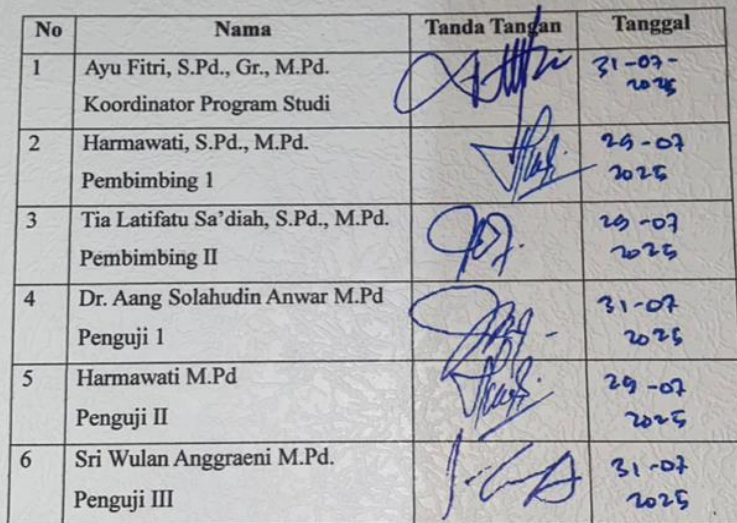 No Nama Tanda Tangan Tanggal
1 Ayu Fitri, S.Pd., Gr., M.Pd. 31-07-
Koordinator Program Studi 2025
2 Harmawati, S.Pd., M.Pd. 29-07
Pembimbing 1 2025
3 Tia Latifatu Sa'diah, S.Pd., M.Pd. 29-07
Pembimbing II 2025
4 Dr. Aang Solahudin Anwar M.Pd 31-07
Penguji 1 2025
5 Harmawati M.Pd 29-07
Penguji II 2025
6 Sri Wulan Anggraeni M.Pd. 31-07
Penguji III 2025